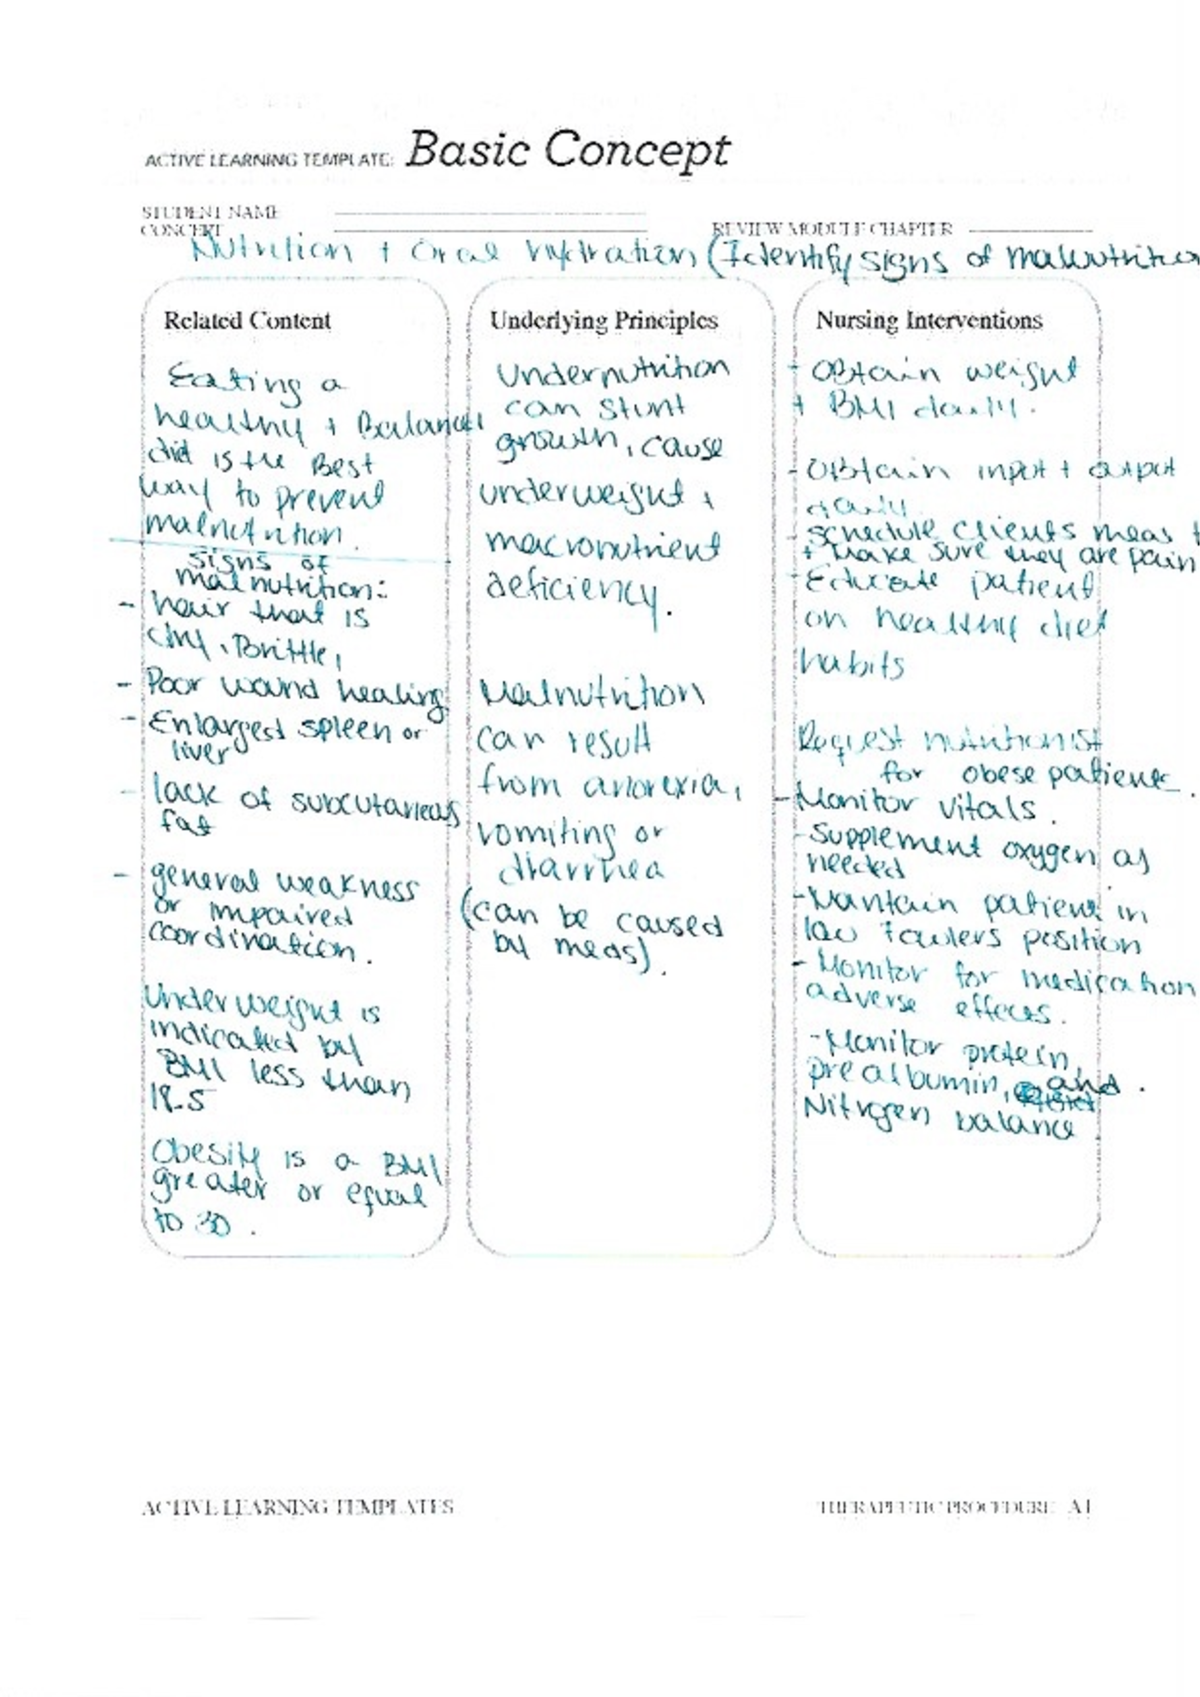 ACTIVE LEARNING TEMPLATE: Basic Concept
STUDENT NAME
CONCEPT
REVIEW MODULE CHAPTER
Nutrition + Oral Hydration (Identify signs of malnutrition
Related Content
Eating a
healthy + Balanced
diet is the Best
way to prevent
malnutrition.
signs of
malnutrition:
- hair that is
dry, Brittle,
- Poor wound healing
- Enlargest spleen or
liver
- lack of subcutaneous
fat
- general weakness
or impaired
coordination.
Underweight is
indicated by
BMI less than
18.5
Obesity is a BMI
greater or equal
to 30.
Underlying Principles
Undernutrition
can stunt
growth, cause
underweight,
macronutrient
deficiency.
Malnutrition
can result
from anorexia,
vomiting or
diarrhea
(can be caused
by meds).
Nursing Interventions
- Obtain weight
+ BMI daily.
- Obtain input + output
daily.
- schedule clients meas
+ make sure they are pain
- Educate patient
on healthy diet
habits
Request nutritionist
for obese patients.
- Monitor vitals.
- Supplement oxygen as
needed
- Mantain patient in
low fowlers position
- Monitor for medication
adverse effects.
- Monitor protein,
prealbumin, and.
Nitrogen balance
ACTIVE LEARNING TEMPLATES
THERAPEUTIC PROCEDURE A1